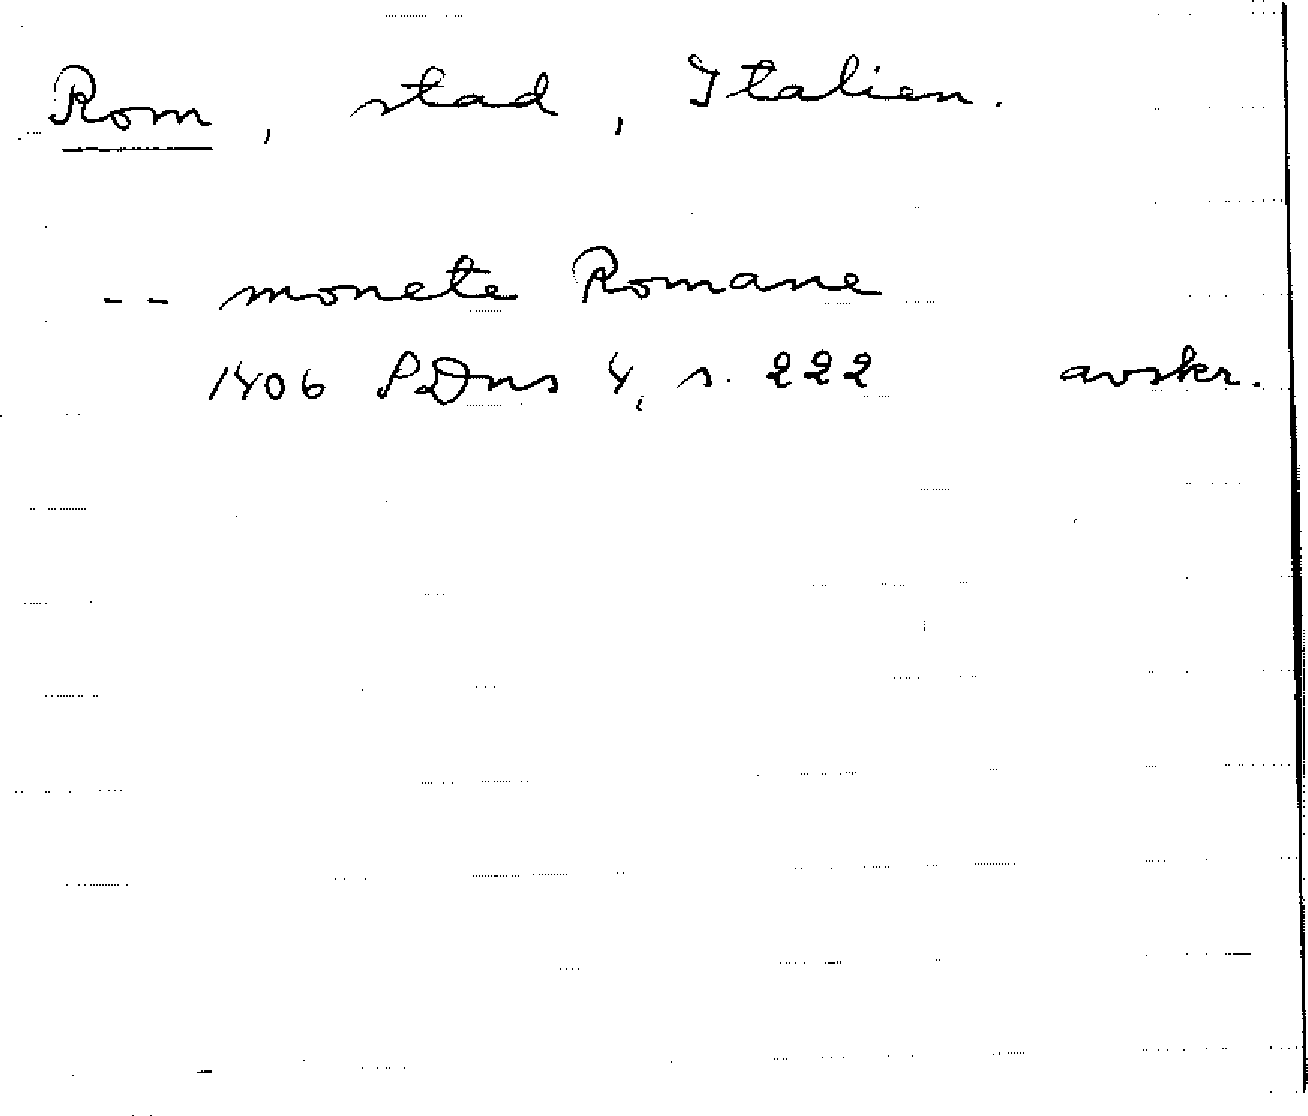 Rom, stad, Italien.
-- monete Romane
1406 SDns 4, s. 222 avskr.